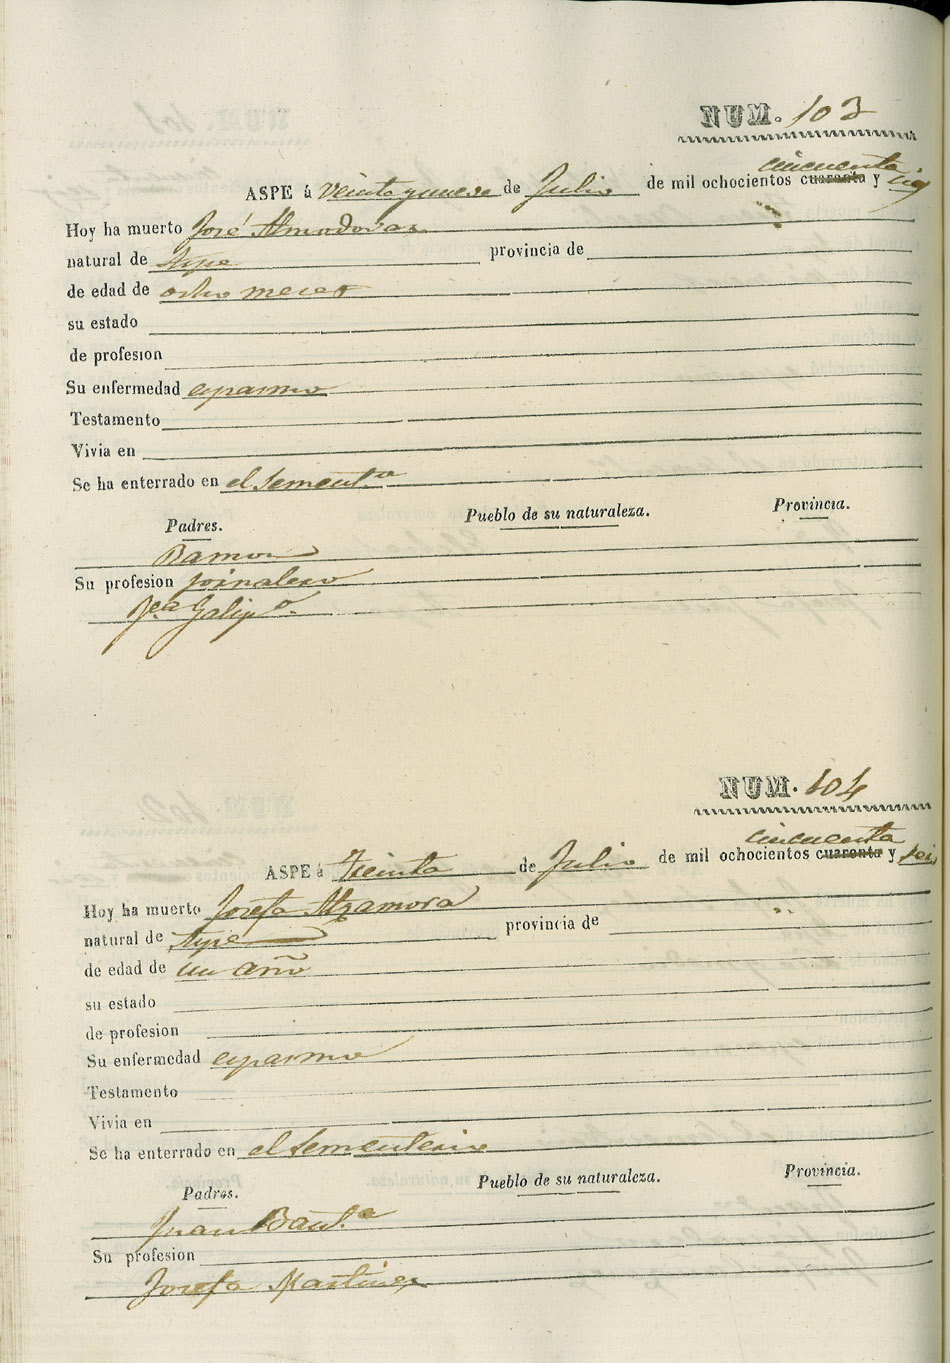 NUM. 103
cincuenta
ASPE á veinte y nueve de Julio de mil ochocientos cuarenta y seis
Hoy ha muerto José Almodovar
natural de Aspe provincia de
de edad de ocho meses
su estado
de profesion
Su enfermedad espasmo
Testamento
Vivia en
Se ha enterrado en el Sementº
Padres. Pueblo de su naturaleza. Provincia.
Ramon
Su profesion jornalero
Galipº
NUM. 104
cincuenta
ASPE á Treinta de Julio de mil ochocientos cuarenta y seis
Hoy ha muerto Josefa Alzamora
natural de Aspe provincia de
de edad de un año
su estado
de profesion
Su enfermedad espasmo
Testamento
Vivia en
Se ha enterrado en el Sementerio
Padres. Pueblo de su naturaleza. Provincia.
Juan Baut.ª
Su profesion
Josefa Martinez